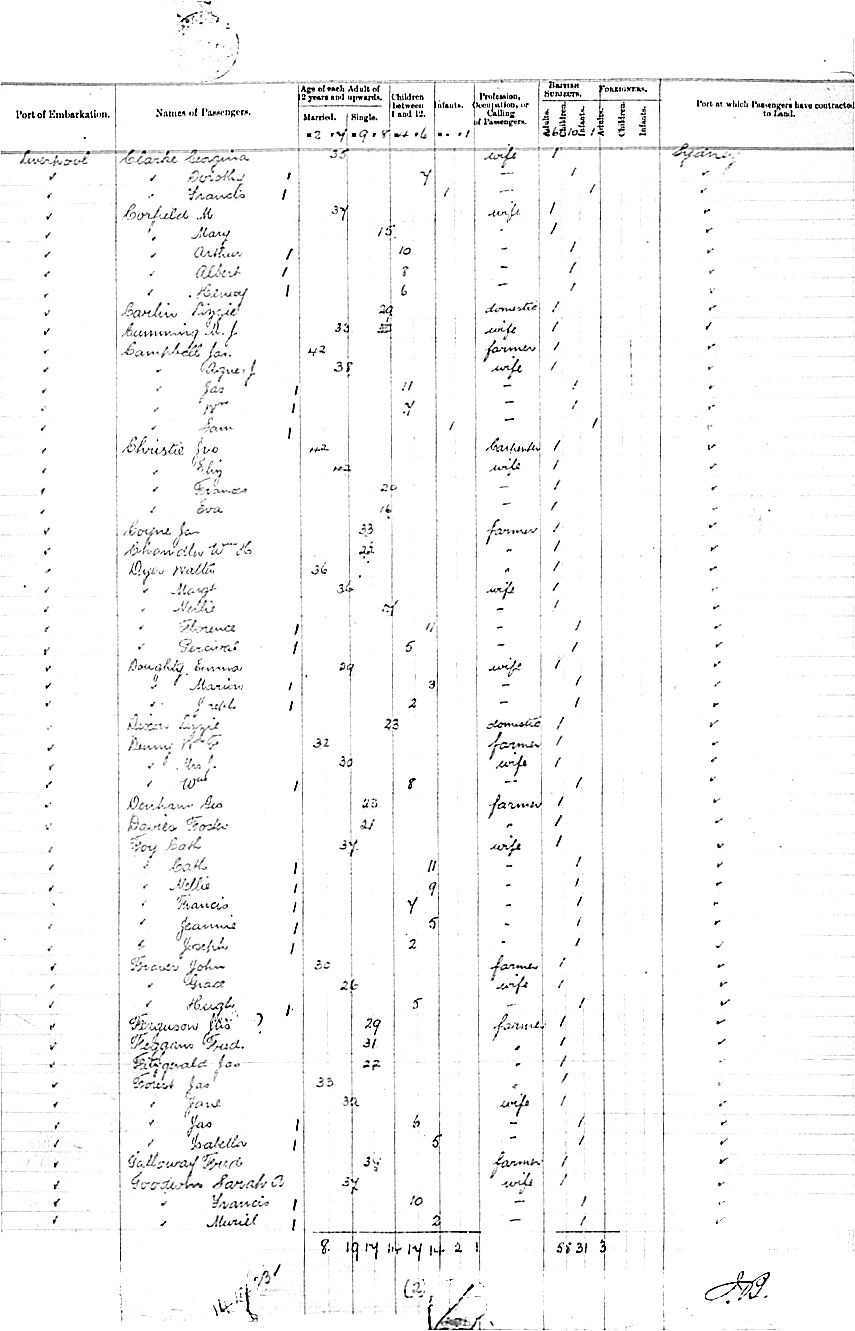 Port of Embarkation. Names of Passengers. Age of each Adult of 12 years and upwards. Married. Single. Children between 1 and 12. Infants. Profession, Occupation, or Calling of Passengers. BRITISH SUBJECTS. Adults. Children. Infants. FOREIGNERS. Adults. Children. Infants. Port at which Passengers have contracted to Land.
Liverpool Clarke 35 wife 1 Sydney
" Dorothy 1 7 - 1 "
" Francis 1 1 1 "
Corfield M 37 wife 1 "
" Mary 15 - 1 "
" Arthur 1 10 - 1 "
" Albert 1 8 - 1 "
" Henry 1 6 - 1 "
Carlin Lizzie 29 domestic 1 "
Cumming M. J. 33 wife 1 "
Campbell Jas. 42 farmer 1 "
" Agnes J 38 wife 1 "
" Jas 1 11 - 1 "
" Wm 1 7 - 1 "
" Sam 1 1 - 1 "
Christie Jno 42 Carpenter 1 "
" Eliz 42 wife 1 "
" Frances 20 - 1 "
" Eva 16 - 1 "
Coyne Jas 33 farmer 1 "
Chandler Wm H 22 " 1 "
Dyer Walter 36 " 1 "
" Margt 36 wife 1 "
" Nellie - 1 "
" Florence 1 11 - 1 "
" Percival 1 5 - 1 "
Doughty Emma 29 wife 1 "
" Marion 1 3 - 1 "
" Joseph 1 2 - 1 "
Dixon Lizzie 23 domestic 1 "
Denny Wm 32 farmer 1 "
" Mrs J. 30 wife 1 "
" Wm 1 8 - 1 "
Denham Geo 23 farmer 1 "
Davies Foster 21 " 1 "
Foy Cath 37 wife 1 "
" Cath 1 11 - 1 "
" Nellie 1 9 - 1 "
" Francis 1 7 - 1 "
" Jeannie 1 5 - 1 "
" Joseph 1 2 - 1 "
Fraser John 30 farmer 1 "
" Grace 26 wife 1 "
" Hugh 1 5 - 1 "
Ferguson Jas ? 29 farmer 1 "
Feggans Fred. 31 " 1 "
Fitzgerald Jas 22 " 1 "
Forest Jas 33 " 1 "
" Jane 32 wife 1 "
" Jas 1 6 - 1 "
" Isabella 1 5 - 1 "
Galloway Fred 37 farmer 1 "
Goodwin Sarah A 37 wife 1 "
" Francis 1 10 - 1 "
" Muriel 1 2 - 1 "
8. 19 17 14 17 14 2 1 58 31 3
(2)
J.B.